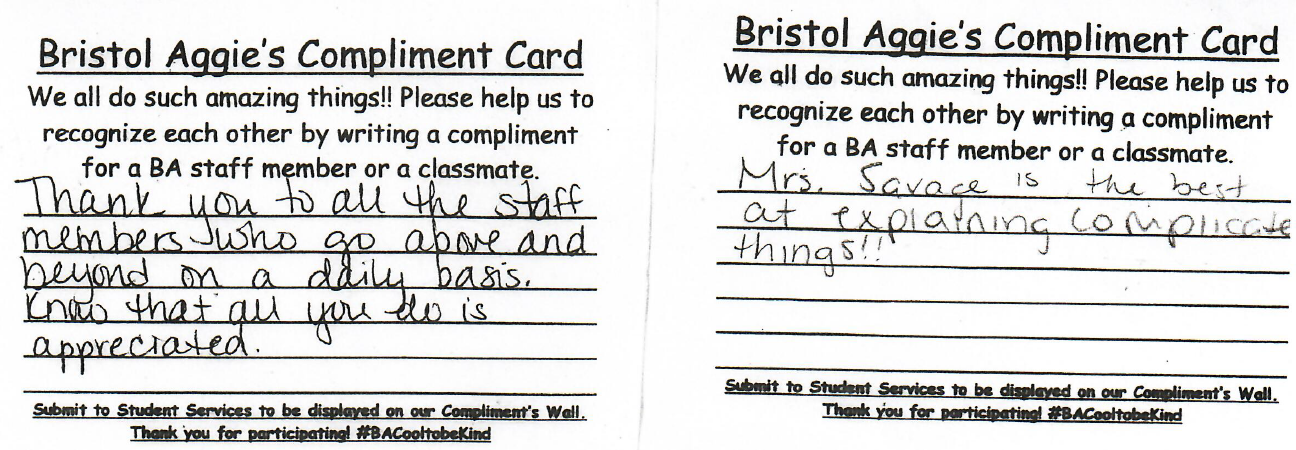 Bristol Aggie's Compliment Card
We all do such amazing things!! Please help us to
recognize each other by writing a compliment
for a BA staff member or a classmate.
Thank you to all the staff
members who go above and
beyond on a daily basis.
Know that all you do is
appreciated.
Submit to Student Services to be displayed on our Compliment's Wall.
Thank you for participating! #BACooltobeKind
Bristol Aggie's Compliment Card
We all do such amazing things!! Please help us to
recognize each other by writing a compliment
for a BA staff member or a classmate.
Mrs. Savage is the best
at explaining complicate
things!!
Submit to Student Services to be displayed on our Compliment's Wall.
Thank you for participating! #BACooltobeKind